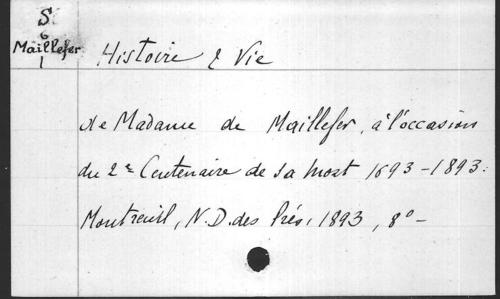 S
6
Maillefer
1
Histoire & Vie
de Madame de Maillefer, à l'occasion
du 2e Centenaire de sa mort 1693-1893.
Montreuil, N.D. des Prés, 1893, 8° -